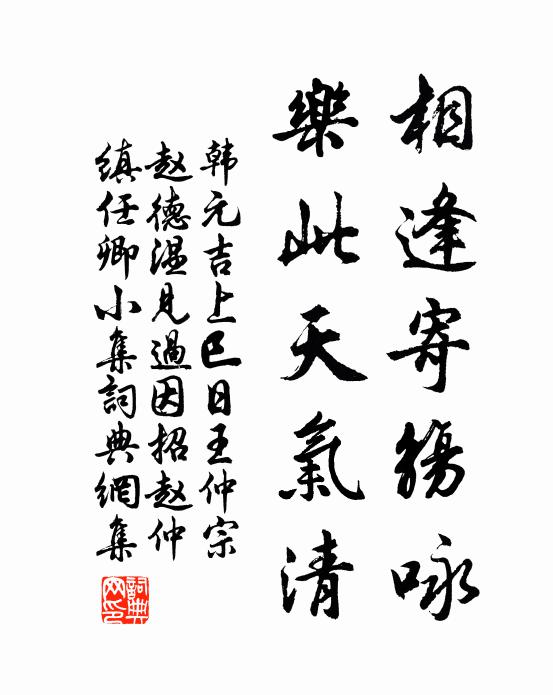 相逢寄觴咏
樂此天氣清
韩元吉上巳日王仲宗
赵德温見過因招赵仲
縝任卿小集詞典網集
詞典
网印